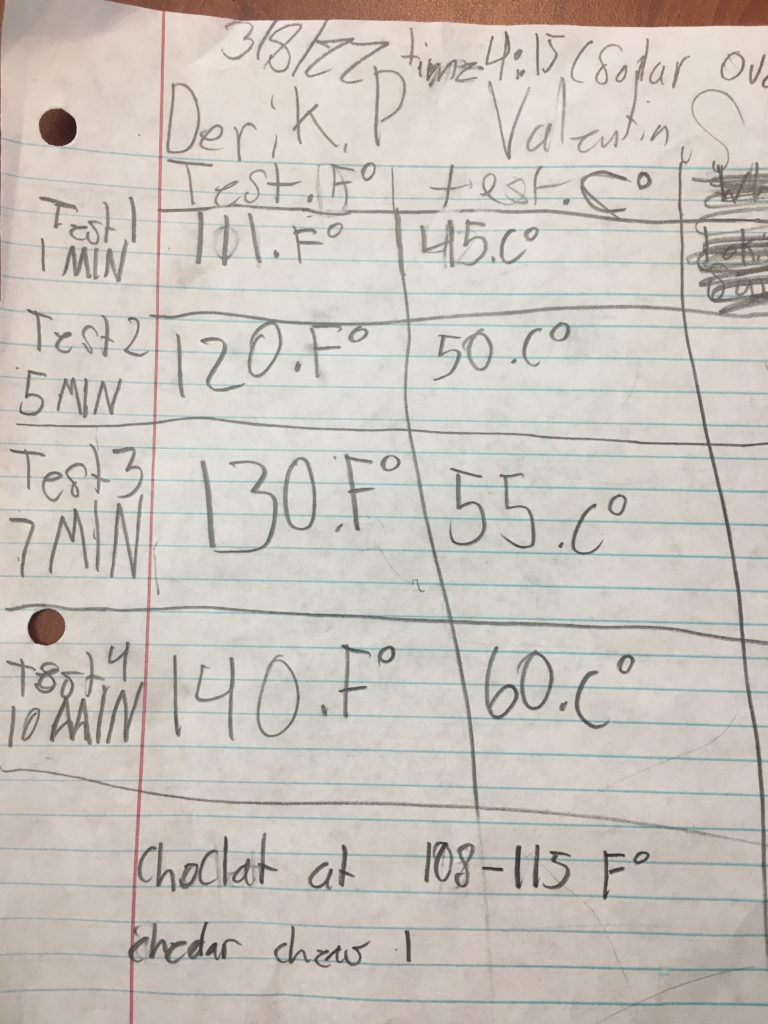 3/8/22 time 4:15 (Solar Ove
Derik. P Valentin. S
Test. F° test. C°
Test 1 111. F° 45. C°
1 MIN
Test 2 120. F° 50. C°
5 MIN
Test 3 130. F° 55. C°
7 MIN
Test 4 140. F° 60. C°
10 MIN
Choclat at 108-115 F°
chedar 1